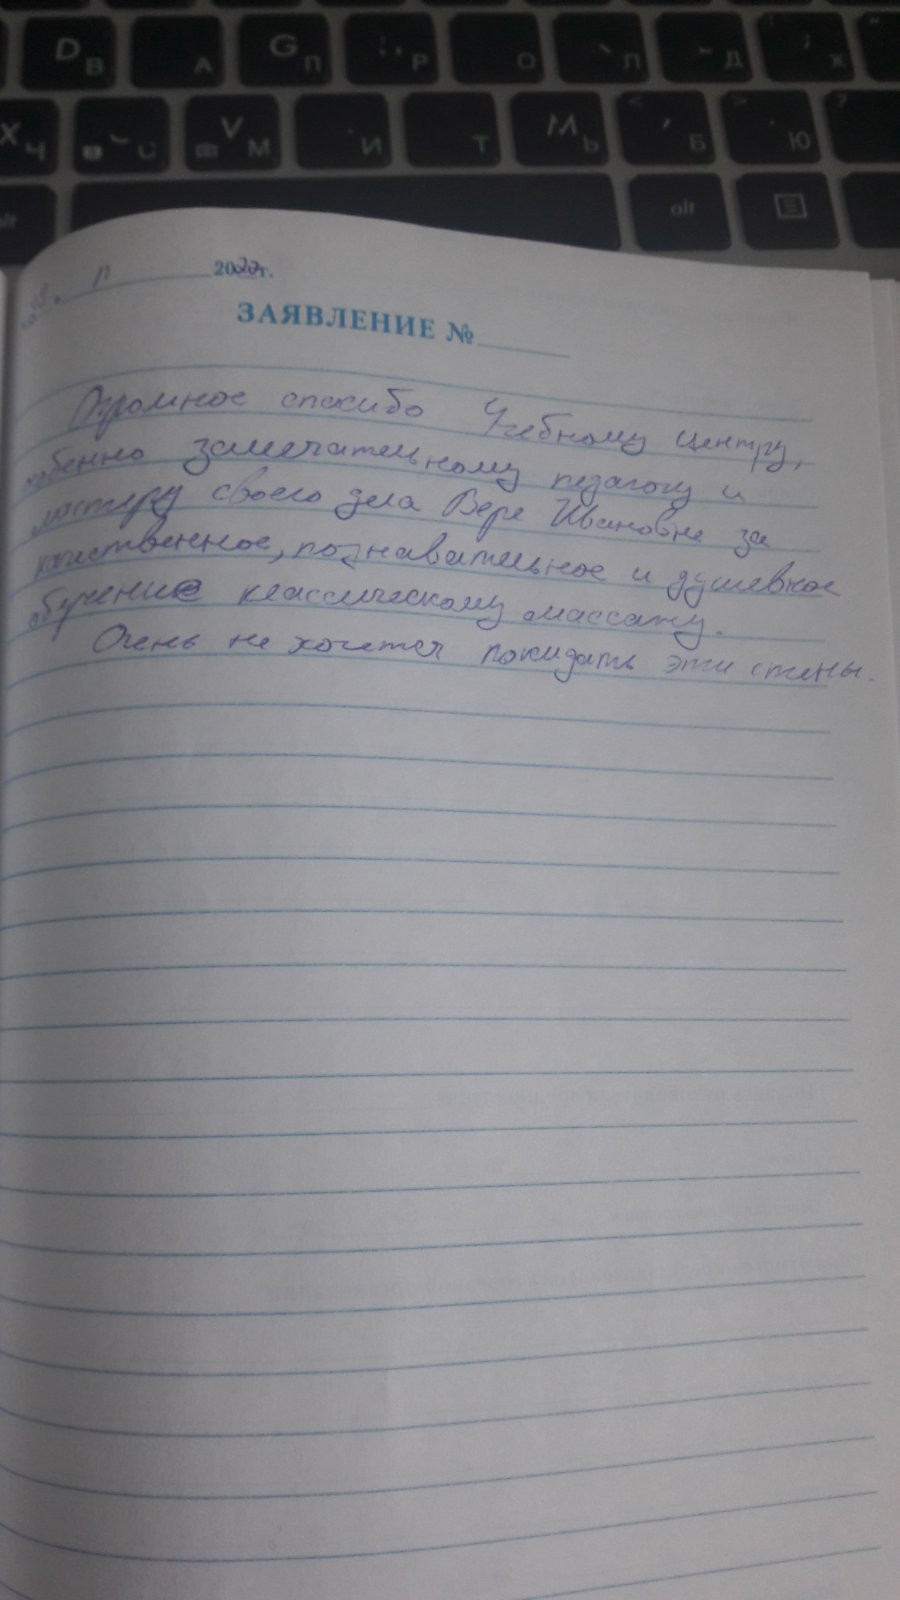 D В А G П Р О Л Д Ж
Х Ч С V М И Т М Ь Б Ю
alt alt
11 2022г.
ЗАЯВЛЕНИЕ №
Огромное спасибо Учебному центру,
особенно замечательному педагогу и
мастеру своего дела Вере Ивановне за
качественное, познавательное и душевное
обучение классическому массажу.
Очень не хочется покидать эти стены.